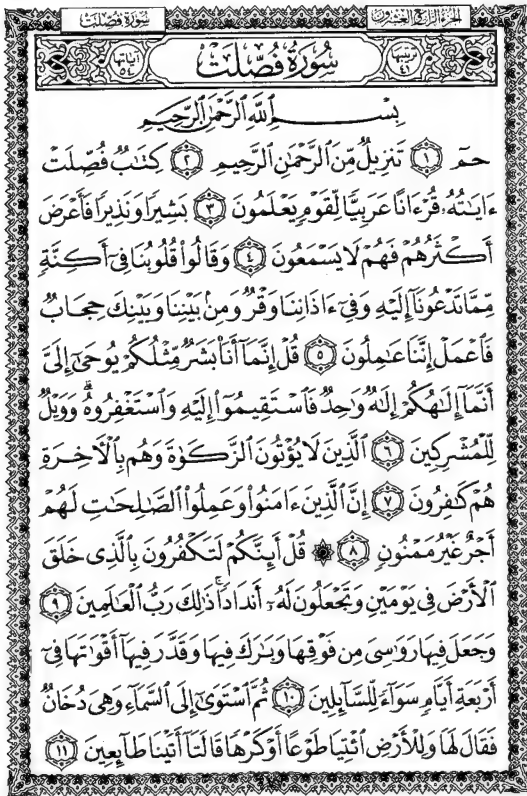 الجزء الرابع والعشرون
سورة فصلت
ترتيبها ٤١
سُورَةُ فُصِّلَتْ
آياتها ٥٤
بِسْمِ ٱللَّهِ ٱلرَّحْمَٰنِ ٱلرَّحِيمِ
حمٓ ١ تَنزِيلٌ مِّنَ ٱلرَّحْمَٰنِ ٱلرَّحِيمِ ٢ كِتَٰبٌ فُصِّلَتْ
ءَايَٰتُهُۥ قُرْءَانًا عَرَبِيًّا لِّقَوْمٍ يَعْلَمُونَ ٣ بَشِيرًا وَنَذِيرًا فَأَعْرَضَ
أَكْثَرُهُمْ فَهُمْ لَا يَسْمَعُونَ ٤ وَقَالُوا۟ قُلُوبُنَا فِىٓ أَكِنَّةٍ
مِّمَّا تَدْعُونَآ إِلَيْهِ وَفِىٓ ءَاذَانِنَا وَقْرٌ وَمِنۢ بَيْنِنَا وَبَيْنِكَ حِجَابٌ
فَٱعْمَلْ إِنَّنَا عَٰمِلُونَ ٥ قُلْ إِنَّمَآ أَنَا۠ بَشَرٌ مِّثْلُكُمْ يُوحَىٰٓ إِلَىَّ
أَنَّمَآ إِلَٰهُكُمْ إِلَٰهٌ وَٰحِدٌ فَٱسْتَقِيمُوٓا۟ إِلَيْهِ وَٱسْتَغْفِرُوهُ ۗ وَوَيْلٌ
لِّلْمُشْرِكِينَ ٦ ٱلَّذِينَ لَا يُؤْتُونَ ٱلزَّكَوٰةَ وَهُم بِٱلْءَاخِرَةِ
هُمْ كَٰفِرُونَ ٧ إِنَّ ٱلَّذِينَ ءَامَنُوا۟ وَعَمِلُوا۟ ٱلصَّٰلِحَٰتِ لَهُمْ
أَجْرٌ غَيْرُ مَمْنُونٍ ٨ ۞ قُلْ أَئِنَّكُمْ لَتَكْفُرُونَ بِٱلَّذِى خَلَقَ
ٱلْأَرْضَ فِى يَوْمَيْنِ وَتَجْعَلُونَ لَهُۥٓ أَندَادًا ۚ ذَٰلِكَ رَبُّ ٱلْعَٰلَمِينَ ٩
وَجَعَلَ فِيهَا رَوَٰسِىَ مِن فَوْقِهَا وَبَٰرَكَ فِيهَا وَقَدَّرَ فِيهَآ أَقْوَٰتَهَا فِىٓ
أَرْبَعَةِ أَيَّامٍ سَوَآءً لِّلسَّآئِلِينَ ١٠ ثُمَّ ٱسْتَوَىٰٓ إِلَى ٱلسَّمَآءِ وَهِىَ دُخَانٌ
فَقَالَ لَهَا وَلِلْأَرْضِ ٱئْتِيَا طَوْعًا أَوْ كَرْهًا قَالَتَآ أَتَيْنَا طَآئِعِينَ ١١